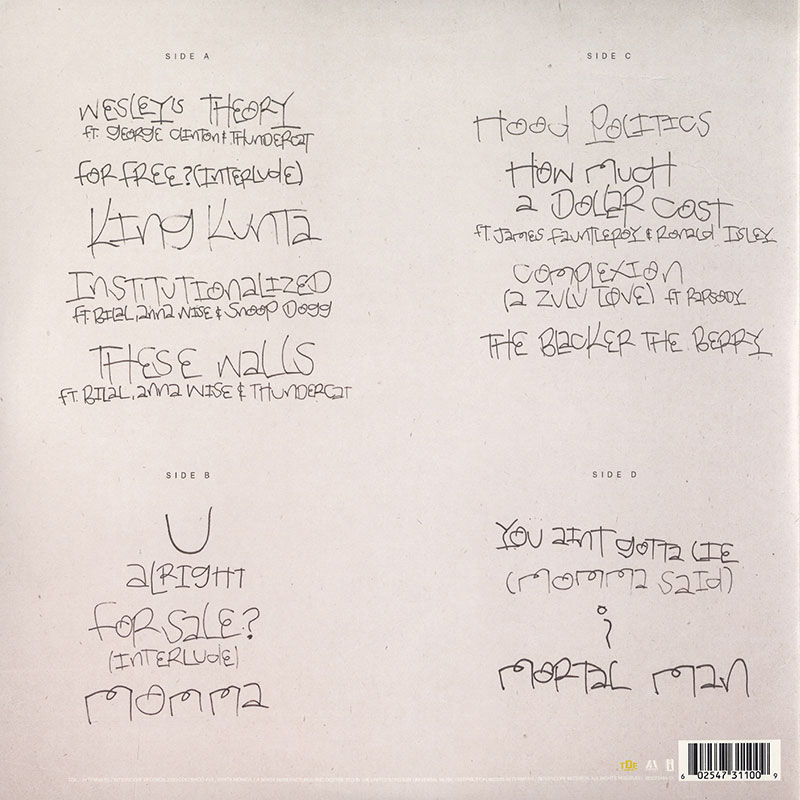 SIDE A
WESLEY'S THEORY
ft. GEORGE CLINTON & THUNDERCAT
FOR FREE? (INTERLUDE)
KING KUNTA
INSTITUTIONALIZED
ft BILAL, ANNA WISE & SNOOP DOGG
THESE WALLS
ft. BILAL, ANNA WISE & THUNDERCAT
SIDE B
U
ALRIGHT
FOR SALE?
(INTERLUDE)
MOMMA
SIDE C
HOOD POLITICS
HOW MUCH
A DOLLAR COST
ft. JAMES FAUNTLEROY & RONALD ISLEY
COMPLEXION
(A ZULU LOVE) ft RAPSODY
THE BLACKER THE BERRY
SIDE D
YOU AINT GOTTA LIE
(MOMMA SAID)
i
MORTAL MAN
TDE
6 02547 31100 9